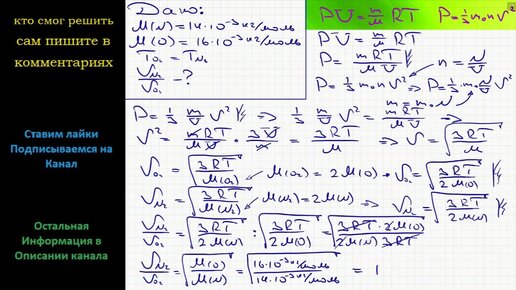 кто смог решить
сам пишите в
комментариях
Ставим лайки
Подписываемся на
Канал
Остальная
Информация в
Описании канала
Дано:
M(N)=14·10⁻³кг/моль
M(O)=16·10⁻³кг/моль
T_O₂ = T_N₂
V_N₂/V_O₂ - ?
PV = m/M RT P = 1/3 m₀ n V²
PV = m/M RT
P = mRT/MV
P = 1/3 m₀ n V² n = N/V P = 1/3 · m₀ · N/V · V²
m = m₀ · N
P = 1/3 m/V V² => 1/3 m/V V² = mRT/MV
V² = mRT/MV · 3V/m = 3RT/M => V = √(3RT/M)
V_O₂ = √(3RT/M(O₂)) M(O₂) = 2M(O) V_O₂ = √(3RT/2M(O))
V_N₂ = √(3RT/M(N₂)) M(N₂) = 2M(N) => V_N₂ = √(3RT/2M(N))
V_N₂/V_O₂ = √(3RT/2M(N)) : √(3RT/2M(O)) = √(3RT · 2M(O)/2M(N) 3RT)
V_N₂/V_O₂ = √(M(O)/M(N)) = √(16·10⁻³кг/моль/14·10⁻³кг/моль) = 1